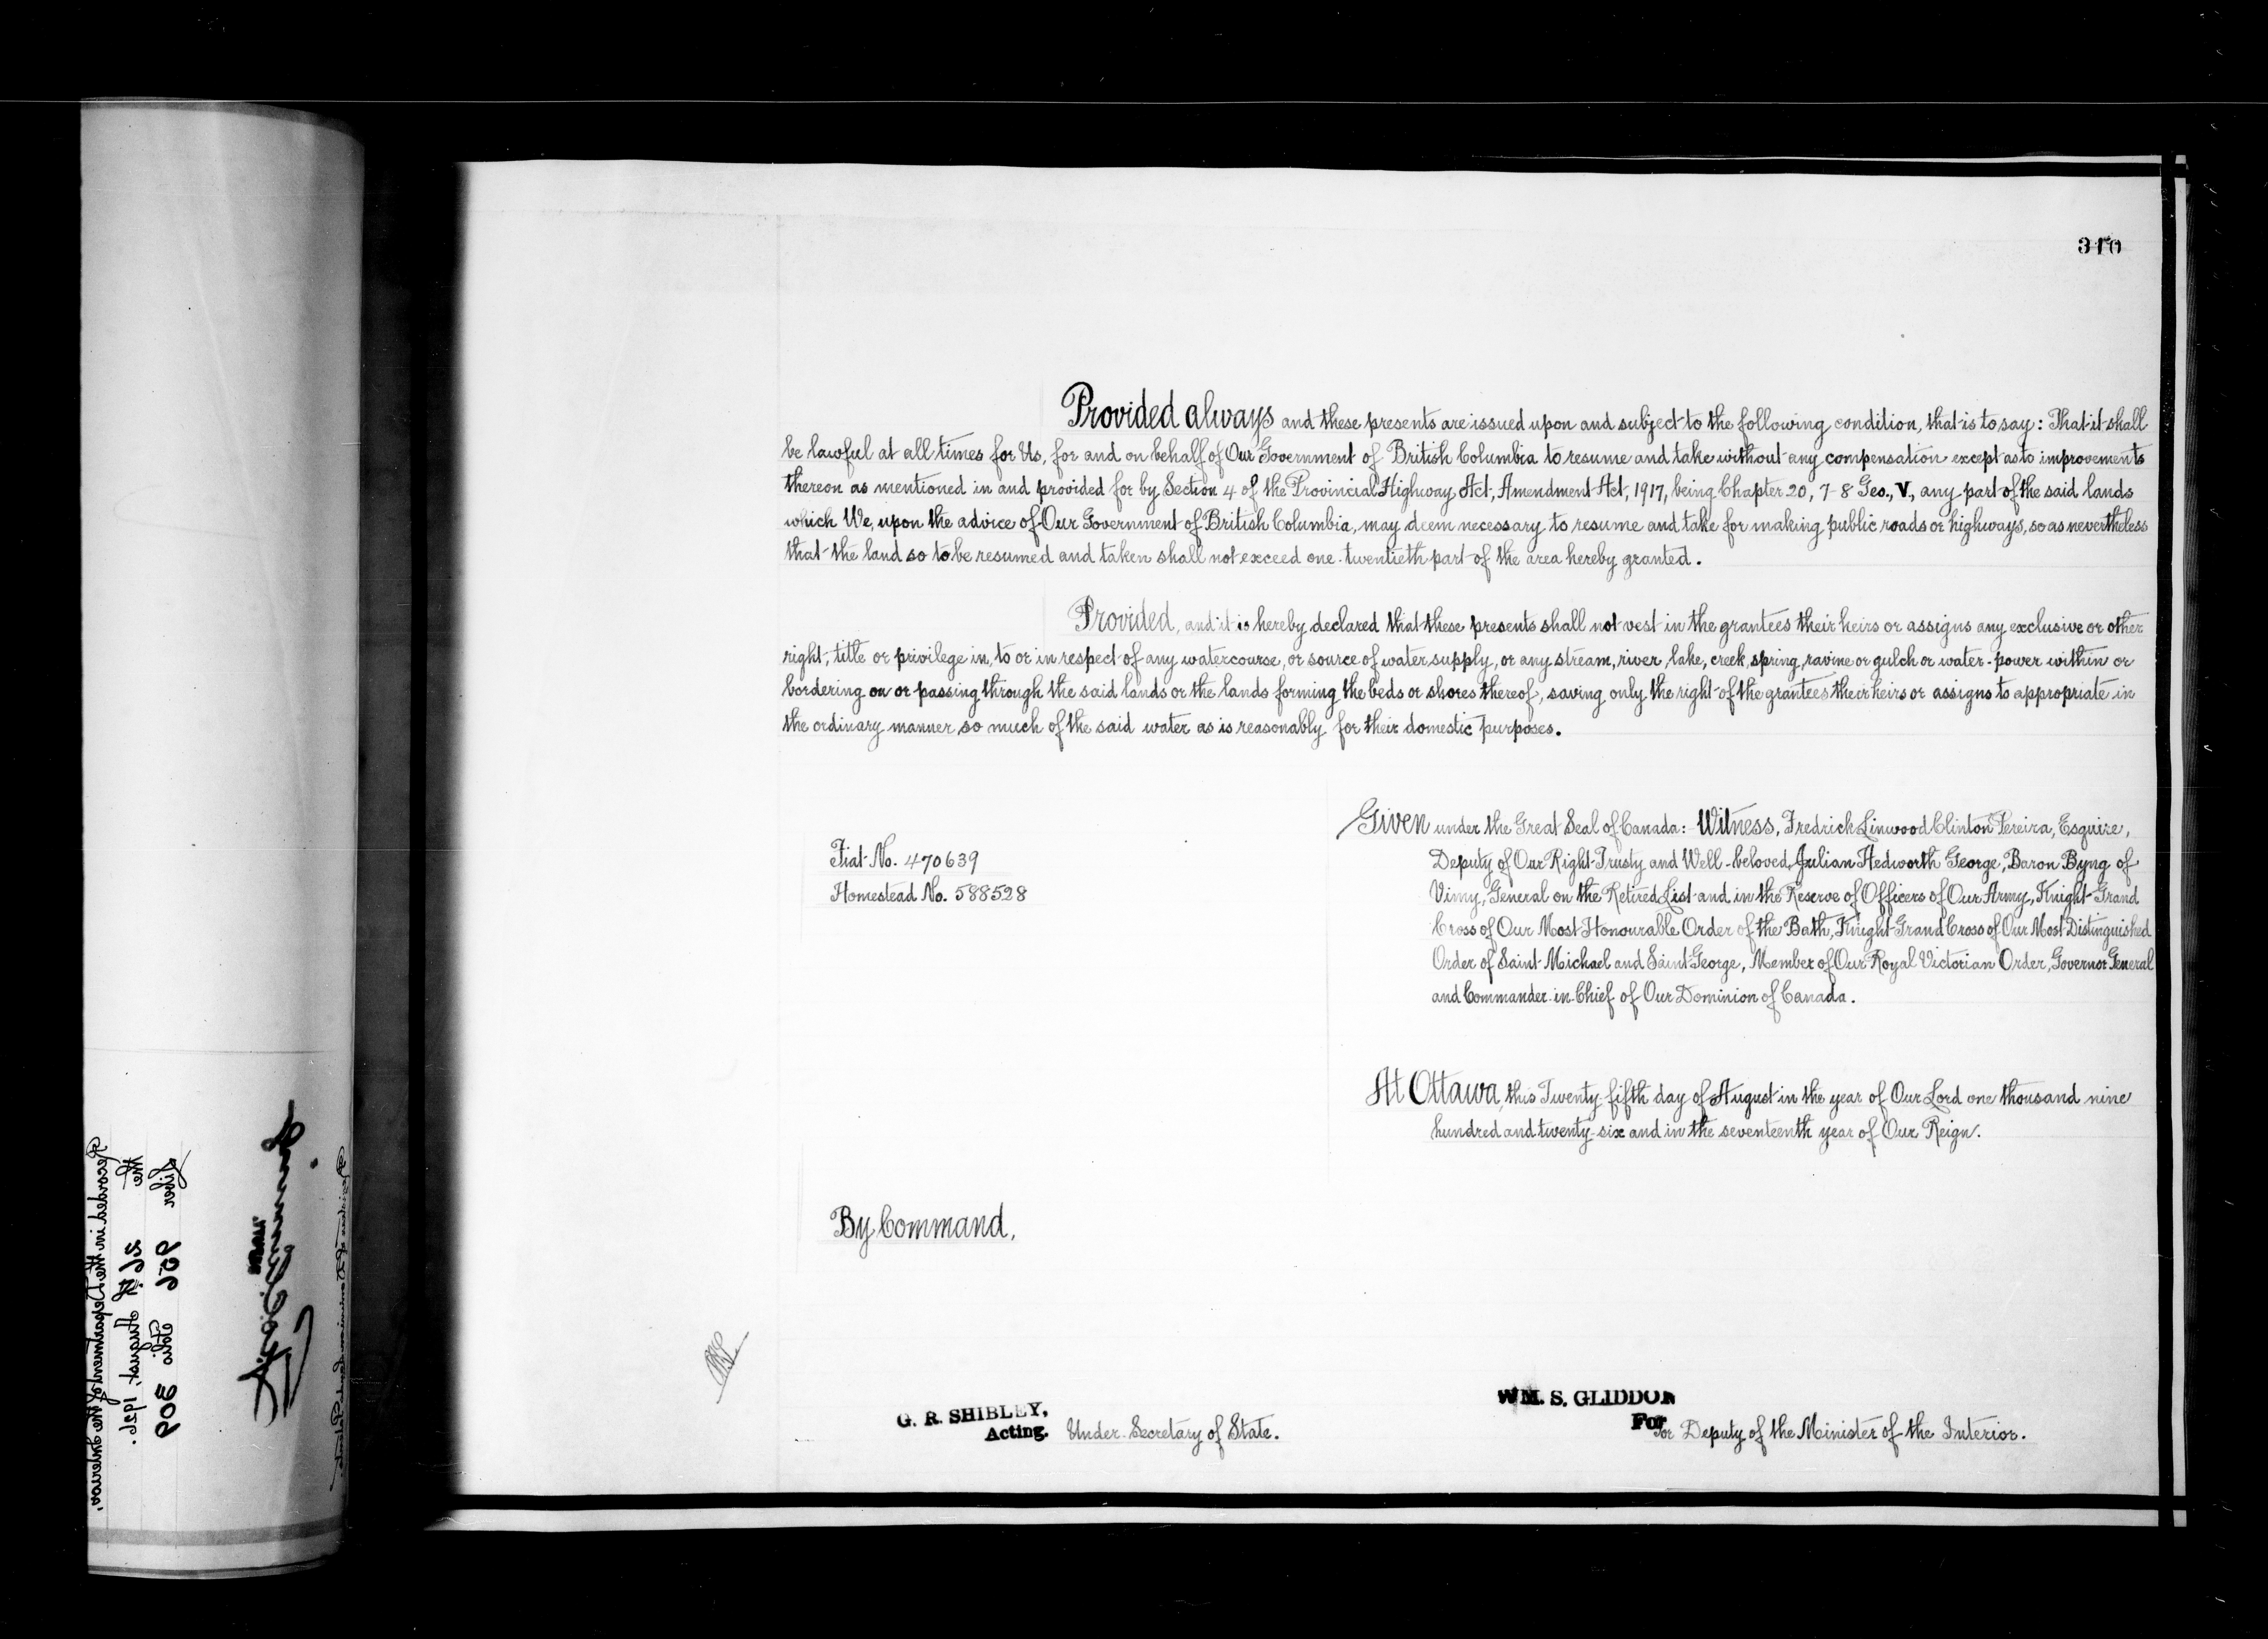 310
Provided always and these presents are issued upon and subject to the following condition, that is to say: That it shall
be lawful at all times for Us, for and on behalf of Our Government of British Columbia to resume and take without any compensation except as to improvements
thereon as mentioned in and provided for by Section 4 of the Provincial Highway Act, Amendment Act, 1917, being Chapter 20, 7-8 Geo., V., any part of the said lands
which We, upon the advice of Our Government of British Columbia, may deem necessary to resume and take for making public roads or highways, so as nevertheless
that the land so to be resumed and taken shall not exceed one-twentieth part of the area hereby granted.
Provided, and it is hereby declared that these presents shall not vest in the grantees their heirs or assigns any exclusive or other
right, title or privilege in, to or in respect of any watercourse, or source of water supply, or any stream, river, lake, creek, spring, ravine or gulch or water-power within or
bordering on or passing through the said lands or the lands forming the beds or shores thereof, saving only the right of the grantees their heirs or assigns to appropriate in
the ordinary manner so much of the said water as is reasonably for their domestic purposes.
Fiat No. 470639
Homestead No. 588528
Given under the Great Seal of Canada:- Witness, Fredrick Linwood Clinton Pereira, Esquire,
Deputy of Our Right Trusty and Well-beloved, Julian Hedworth George, Baron Byng of
Vimy, General on the Retired List and in the Reserve of Officers of Our Army, Knight Grand
Cross of Our Most Honourable Order of the Bath, Knight Grand Cross of Our Most Distinguished
Order of Saint Michael and Saint George, Member of Our Royal Victorian Order, Governor General
and Commander-in-Chief of Our Dominion of Canada.
At Ottawa, this Twenty-fifth day of August in the year of Our Lord one thousand nine
hundred and twenty-six and in the seventeenth year of Our Reign.
By Command,
G. R. SHIBLEY,
Acting. Under-Secretary of State.
WM. S. GLIDDON
For for Deputy of the Minister of the Interior.
Recorded in the Department of the Interior,
the 26th August, 1926.
Liber 656 Folio 309
Registrar of Dominion Lands Patents.